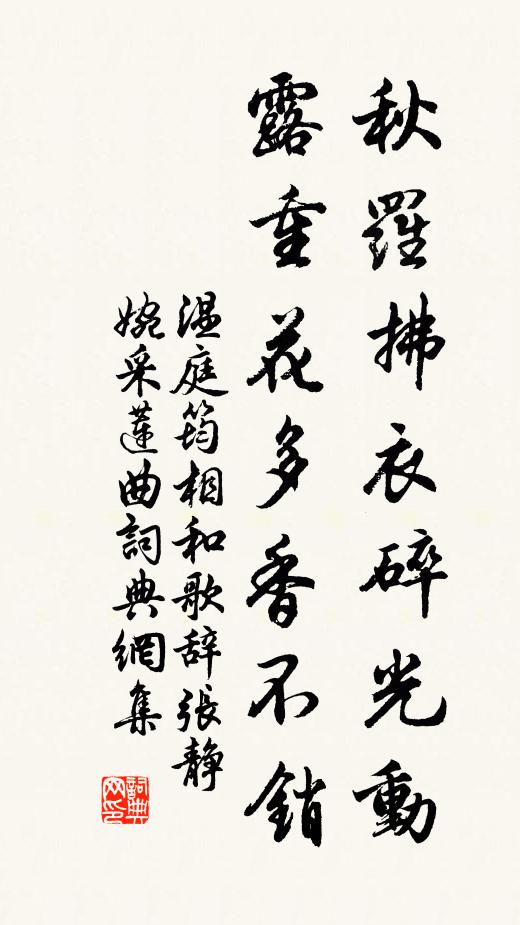 秋羅拂衣碎光動
露重花多香不銷
温庭筠相和歌辞張静
婉采蓮曲詞典網集
詞典網印